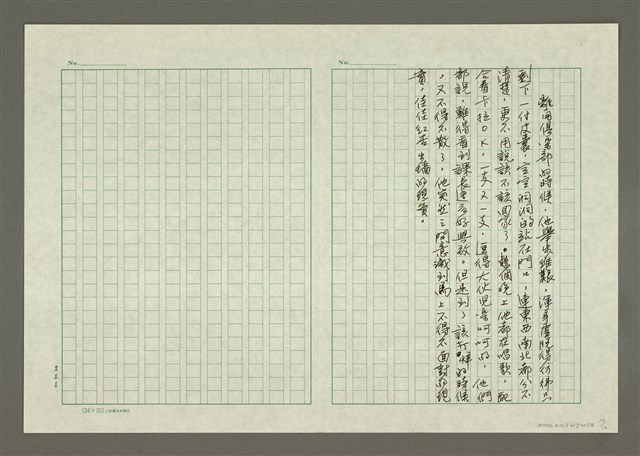 離開俱樂部的時候，他舉步維艱，渾身虛脫得彷彿只
剩下一付皮囊，空空洞洞的站在門口，連東西南北都分不
清楚，更不用說該不該回家了。整個晚上他都在唱歌，配
合著卡拉OK，一支又一支，逗得大伙兒樂呵呵的，他們
都說，難得看到課長這麼好興致。但是到了該打烊的時候
，又不得不散了，他突然之間意識到馬上不得不面對的總
蕾，佳佳紅杏出牆的總蕾。
No.
No.
(24×25)